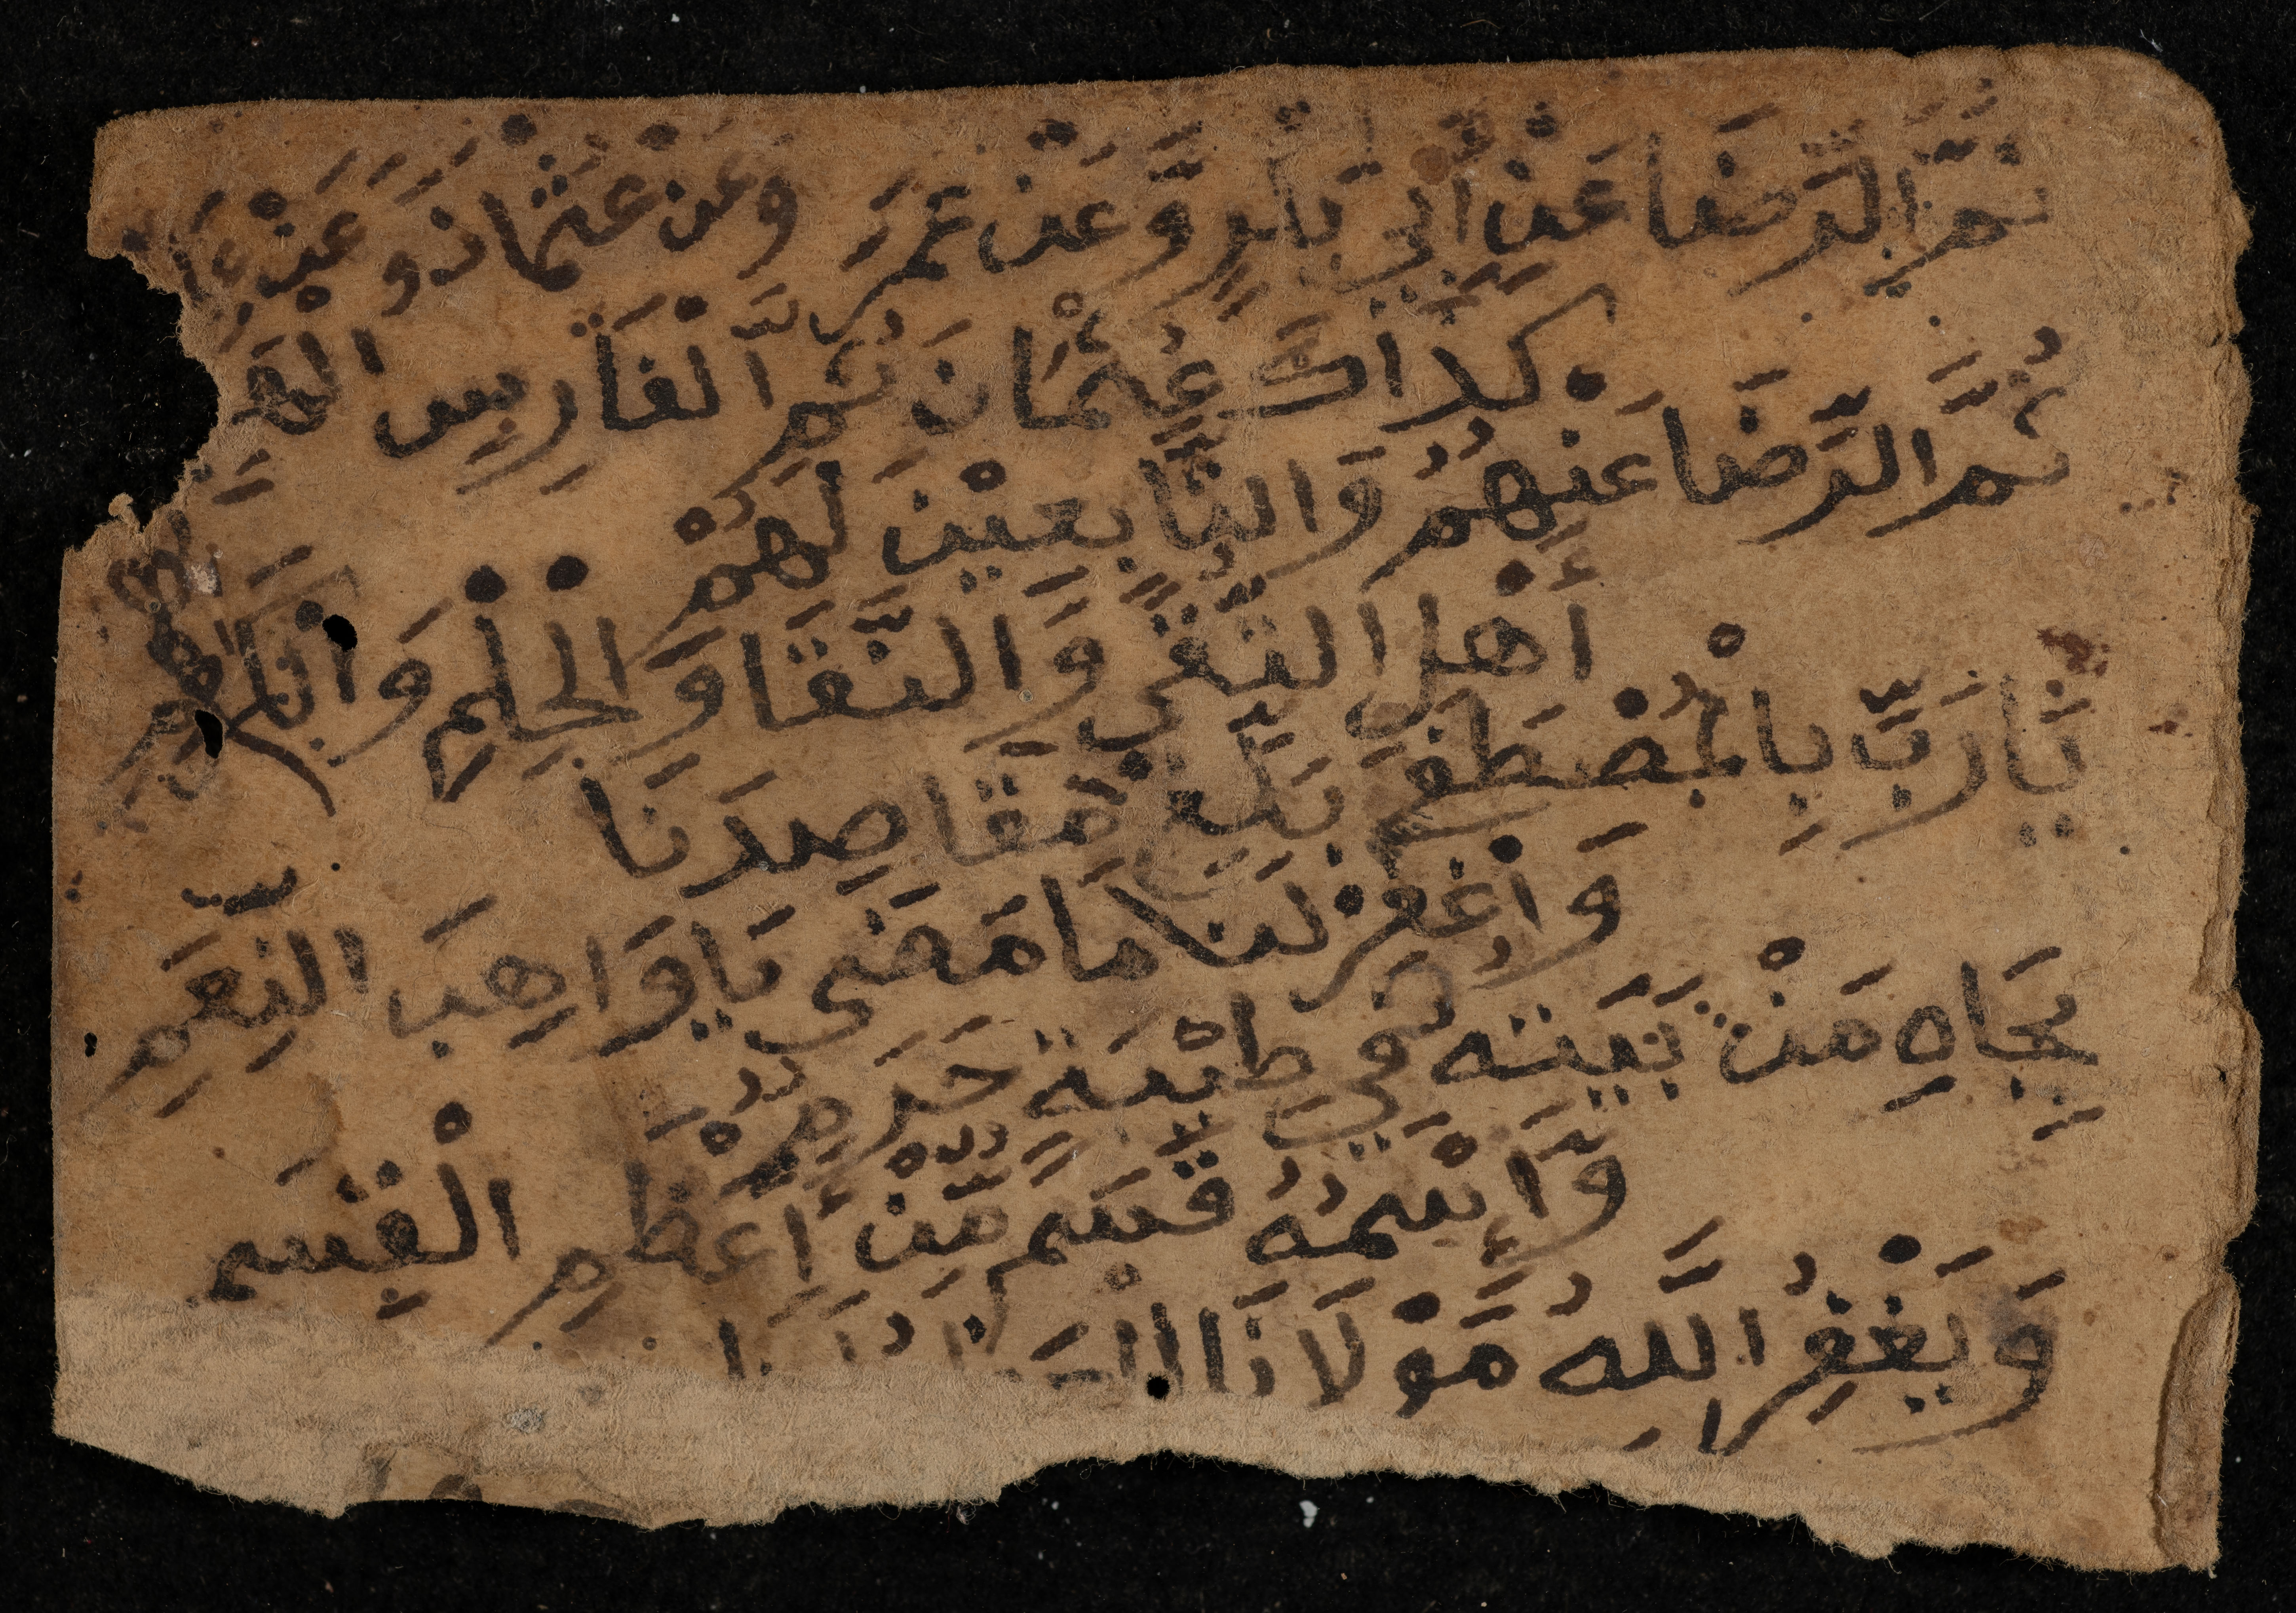 ثُمَّ الرِّضَا عَنْ أَبِي بَكْرٍ وَّعَنْ عُمَرَ وَعَنْ عُثْمَانَ وَعَنْ
كَذَاكَ عُثْمَانَ ثُمَّ الْفَارِسِ
ثُمَّ الرِّضَا عَنْهُمُ وَالتَّابِعِيْنَ لَهُمْ
أَهْلِ التُّقَى وَالنَّقَا وَالْحِلْمِ وَالْكَرَمِ
يَا رَبِّ بِالْمُصْطَفَى بَلِّغْ مَقَاصِدَنَا
وَاغْفِرْ لَنَا مَا مَضَى يَا وَاهِبَ النِّعَمِ
بِجَاهِ مَنْ بَيْتُهُ فِي طِيْبَةٍ حَرَمٌ
وَإِسْمُهُ قَسَمٌ مِّنْ أَعْظَمِ الْقِسَمِ
وَيَغْفِرُ اللَّهُ مَوْلَانَا